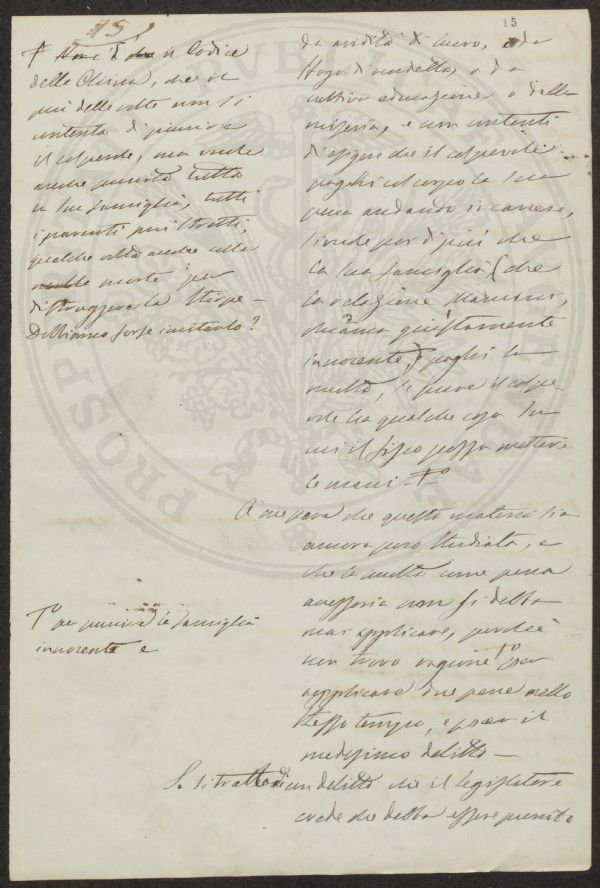 15
15
da avidità di lucro, o da
sfogo di vendetta, o da
cattiva educazione o dalla
miseria, e non contenti
d'esigere che il colpevole
paghi col corpo la sua
pena andando in carcere,
si vede poi di più che
la sua famiglia (che
la relazione Mancini,
chiama giustamente
innocente,) paghi la
multa, se pure il colpe-
vole ha qualche cosa su
cui il fisco possa mettere
le mani —
A me pare che questa materia sia
ancora poco studiata, e
che la multa come pena
accessoria non si debba
mai applicare, perchè
non trovo ragione per
applicare due pene nello
stesso tempo, e per il
medesimo delitto —
Se si tratta di un delitto che il legislatore
crede che debba essere punito
il Codice
della China, che il
più delle volte non si
contenta di punire
il colpevole, ma vuole
anche punita tutta
la sua famiglia, tutti
i parenti più stretti,
qualche volta anche colla
morte per
distruggere la stirpe —
Dobbiamo forse imitarlo?
per punire la famiglia
innocente e
PROSPERITATI PVBLICAE